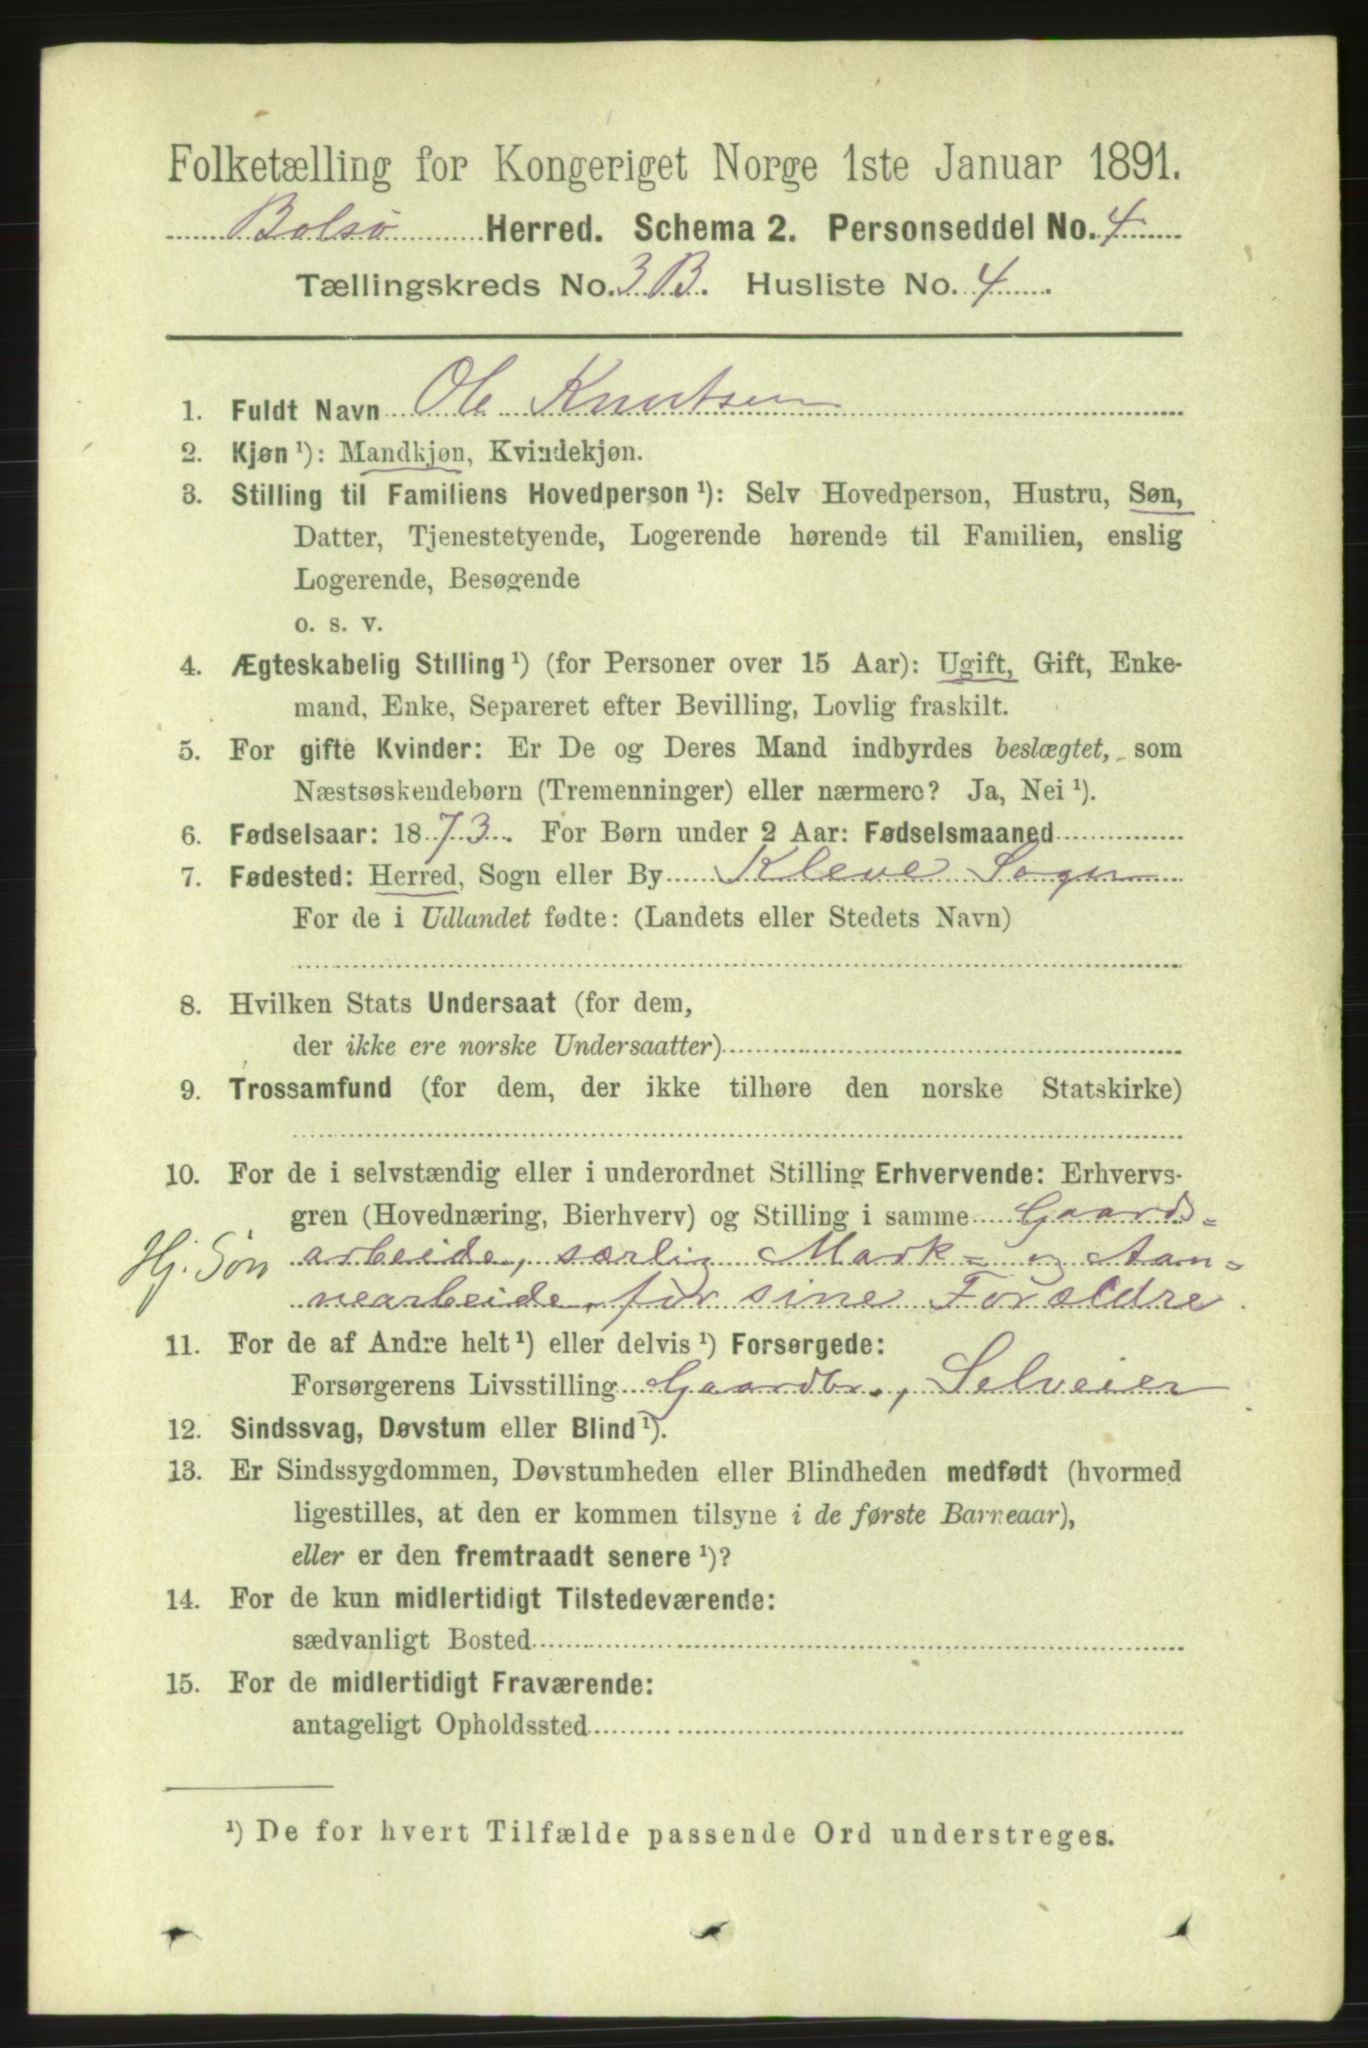 Folketælling for Kongeriget Norge 1ste Januar 1891.
Bolsø Herred. Schema 2. Personseddel No. 4
Tællingskreds No. 3 B. Husliste No. 4
1. Fuldt Navn Ole Knutsen
2. Kjøn ¹): Mandkjøn, Kvindekjøn.
3. Stilling til Familiens Hovedperson ¹): Selv Hovedperson, Hustru, Søn,
Datter, Tjenestetyende, Logerende hørende til Familien, enslig
Logerende, Besøgende
o. s. v.
4. Ægteskabelig Stilling ¹) (for Personer over 15 Aar): Ugift, Gift, Enke-
mand, Enke, Separeret efter Bevilling, Lovlig fraskilt.
5. For gifte Kvinder: Er De og Deres Mand indbyrdes beslægtet, som
Næstsøskendebørn (Tremenninger) eller nærmere? Ja, Nei ¹).
6. Fødselsaar: 1873. For Børn under 2 Aar: Fødselsmaaned
7. Fødested: Herred, Sogn eller By Kleve Sogn
For de i Udlandet fødte: (Landets eller Stedets Navn)
8. Hvilken Stats Undersaat (for dem,
der ikke ere norske Undersaatter)
9. Trossamfund (for dem, der ikke tilhøre den norske Statskirke)
10. For de i selvstændig eller i underordnet Stilling Erhvervende: Erhvervs-
gren (Hovednæring, Bierhverv) og Stilling i samme Gaards=
Hj. Søn arbeide, særlig Mark= og Aan=
nearbeide, for sine Forældre.
11. For de af Andre helt ¹) eller delvis ¹) Forsørgede:
Forsørgerens Livsstilling Gaardbr., Selveier
12. Sindssvag, Døvstum eller Blind ¹).
13. Er Sindssygdommen, Døvstumheden eller Blindheden medfødt (hvormed
ligestilles, at den er kommen tilsyne i de første Barneaar),
eller er den fremtraadt senere ¹)?
14. For de kun midlertidigt Tilstedeværende:
sædvanligt Bosted
15. For de midlertidigt Fraværende:
antageligt Opholdssted
¹) De for hvert Tilfælde passende Ord understreges.